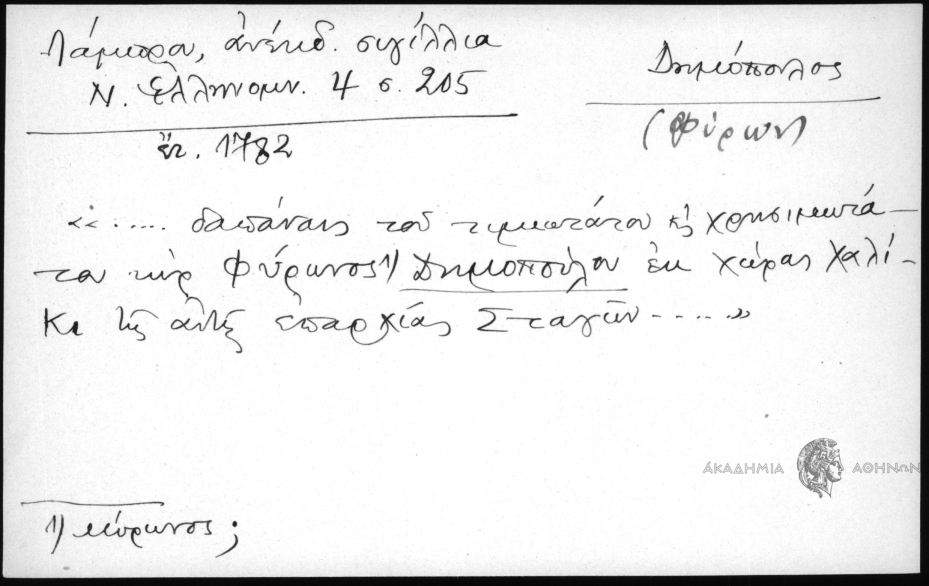 Λάμπρου, ἀνέκδ. σιγίλλια
Ν. Ἑλληνομν. 4 σ. 205
ἔτ. 1782
Δημόπουλος
(Φύρων)
«..... δαπάναις τοῦ τιμιωτάτου κ χρησιμωτά-
του κὺρ Φύρωνος 1) Δημοπούλου ἐκ χώρας Χαλί-
κι τῆς αὐτῆς ἐπαρχίας Σταγῶν .....»
ΑΚΑΔΗΜΙΑ ΑΘΗΝΩΝ
1) Μύρωνος;